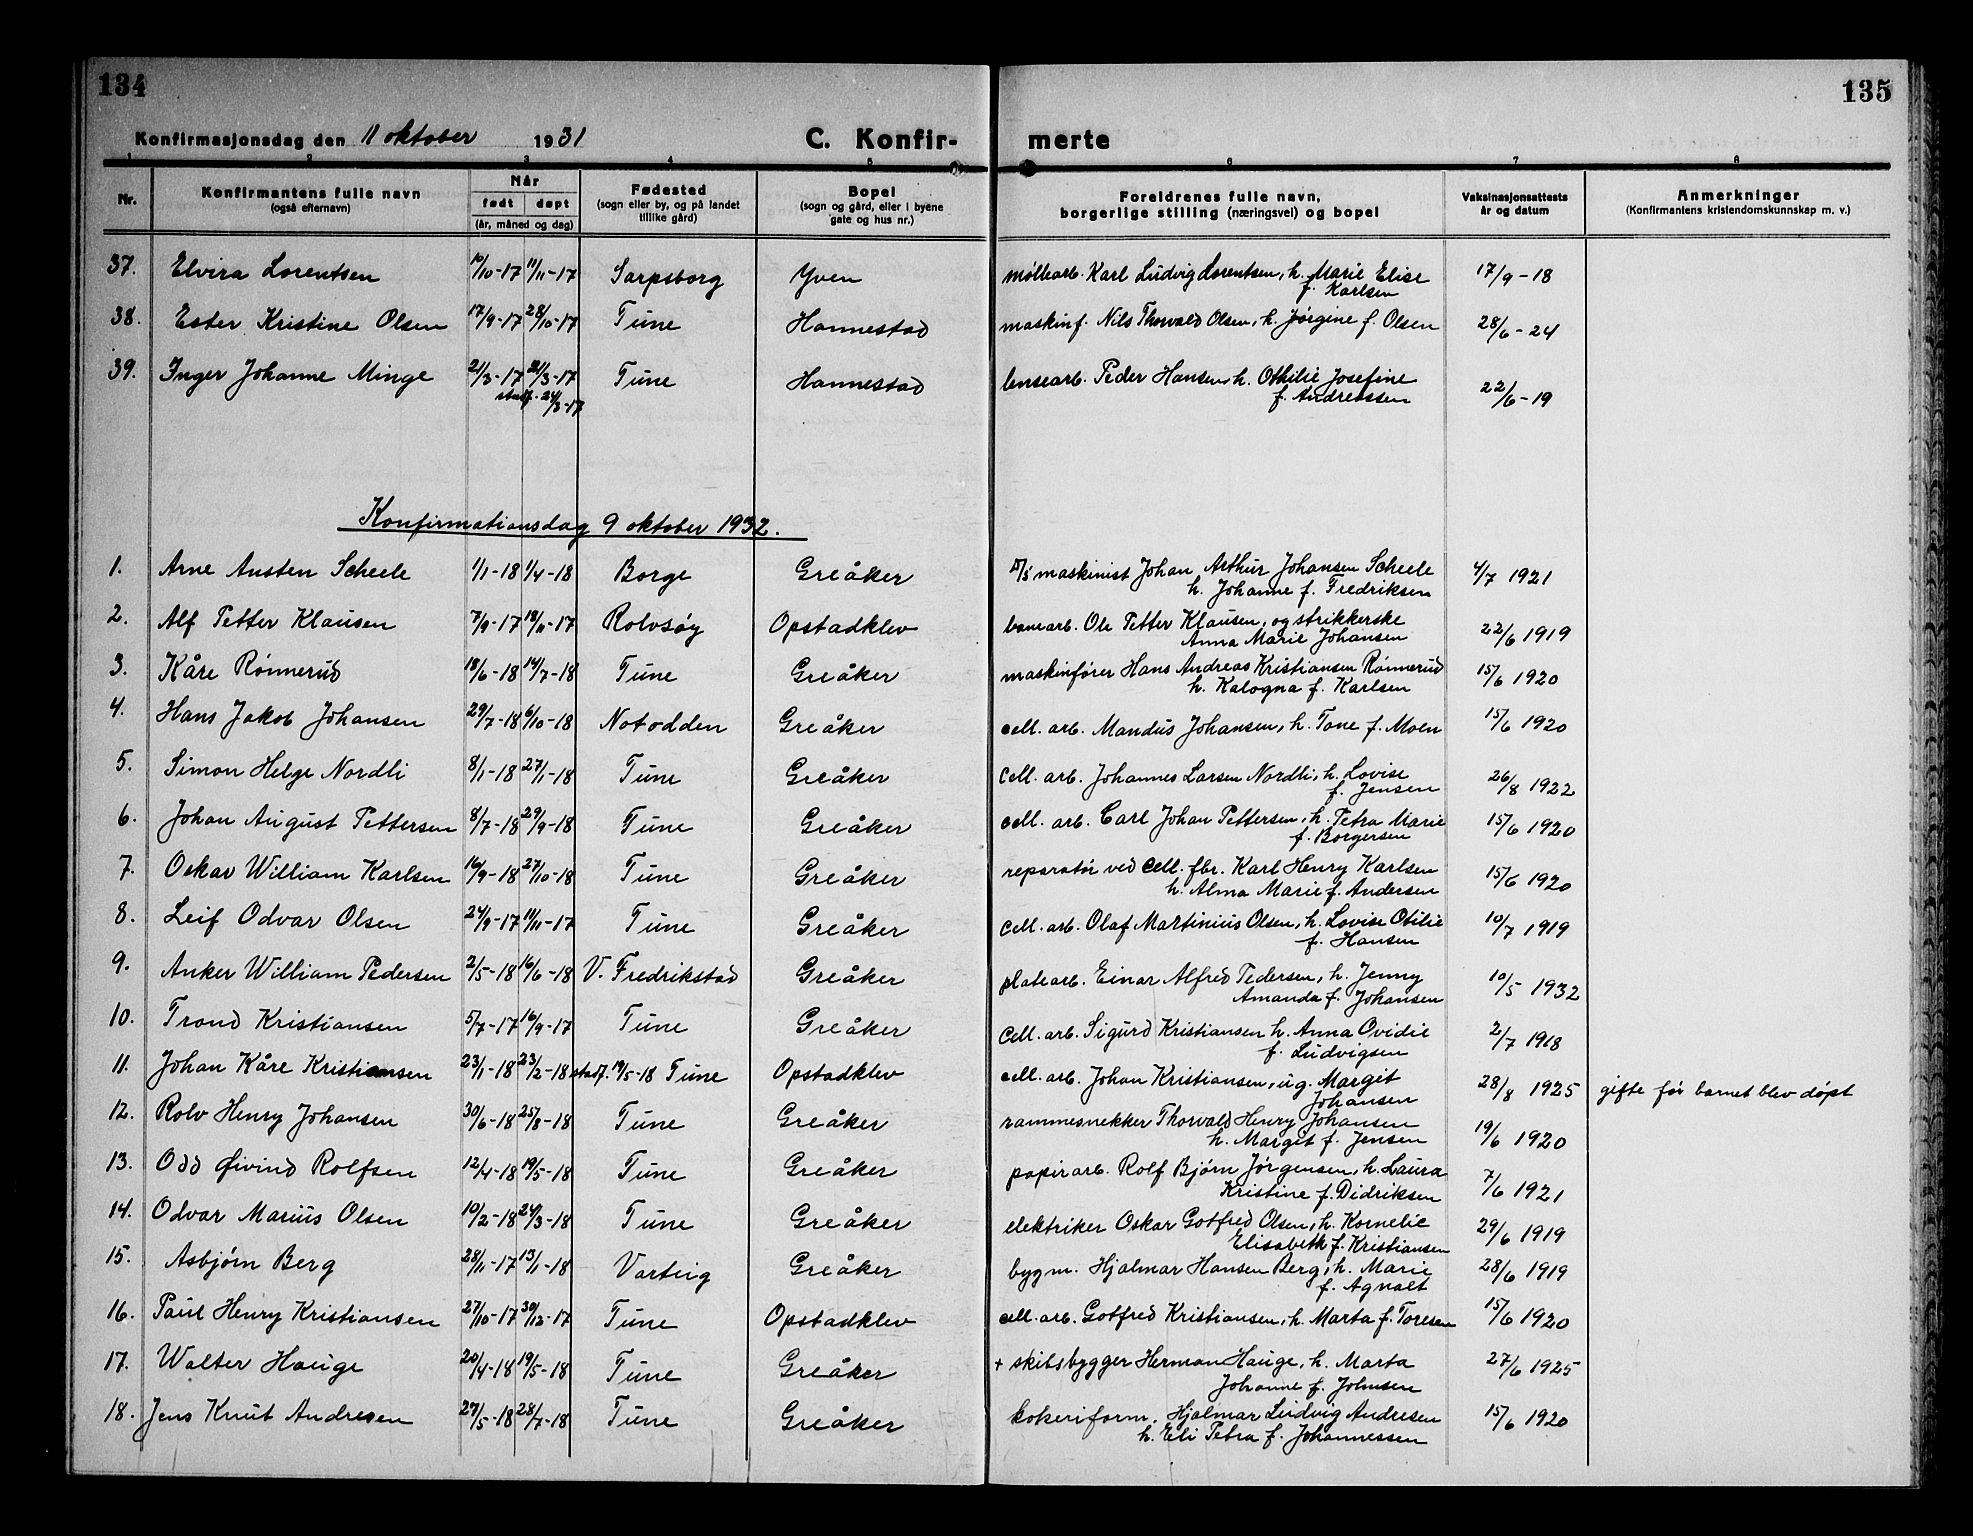 134
135
Konfirmasjonsdag den 11 oktober 1931
C. Konfir-
merte
1 2 3 4 5 6 7 8
Nr. Konfirmantens fulle navn (også efternavn) Når født døpt (år, måned og dag) Fødested (sogn eller by, og på landet tillike gård) Bopel (sogn og gård, eller i byene gate og hus nr.) Foreldrenes fulle navn, borgerlige stilling (næringsvei) og bopel Vaksinasjonsattests år og datum Anmerkninger (Konfirmantens kristendomskunnskap m. v.)
37. Elvira Lorentsen 10/10-17 11/11-17 Sarpsborg Yven møllearb. Karl Ludvig Lorentsen, h. Marie Elise 17/9-18
f. Karlsen
38. Ester Kristine Olsen 17/9-17 28/10-17 Tune Hannestad maskinf. Nils Thorvald Olsen, h. Jørgine f. Olsen 28/6-24
39. Inger Johanne Minge 21/3-17 21/3-17 Tune Hannestad lensearb. Peder Hansen, h. Othilie Josefine 22/6-19
stadf. 24/3-17 f. Andreassen
Konfirmationsdag 9 oktober 1932.
1. Arne Austen Scheele 1/1-18 1/4-18 Borge Greåker D/S maskinist Johan Arthur Johansen Scheele 4/7 1921
h. Johanne f. Fredriksen
2. Alf Petter Klausen 7/9-17 18/11-17 Rolvsøy Opstadklev banearb. Ole Petter Klausen, og strikkerske 22/6 1919
Anna Marie Johansen
3. Kåre Rønnerud 18/6-18 14/7-18 Tune Greåker maskinfører Hans Andreas Kristiansen Rønnerud 15/6 1920
h. Kalogna f. Karlsen
4. Hans Jakob Johansen 29/7-18 6/10-18 Notodden Greåker cell. arb. Mandus Johansen, h. Tone f. Moen 15/6 1920
5. Simon Helge Nordli 8/1-18 27/1-18 Tune Greåker cell. arb. Johannes Larsen Nordli, h. Lovise 26/8 1922
f. Jensen
6. Johan August Pettersen 8/7-18 29/9-18 Tune Greåker cell. arb. Carl Johan Pettersen, h. Petra Marie 15/6 1920
f. Borgersen
7. Oskar William Karlsen 16/9-18 27/10-18 Tune Greåker reparatør ved cell. fbr. Karl Henry Karlsen 15/6 1920
h. Alma Marie f. Andersen
8. Leif Odvar Olsen 24/9-17 11/11-17 Tune Greåker cell. arb. Olaf Martinius Olsen, h. Lovise Otilie 10/7 1919
f. Hansen
9. Anker William Pedersen 2/5-18 16/6-18 V. Fredrikstad Greåker platearb. Einar Alfred Pedersen, h. Jenny 10/5 1932
Amanda f. Johansen
10. Trond Kristiansen 5/7-17 16/9-17 Tune Greåker cell. arb. Sigurd Kristiansen h. Anna Ovidie 2/7 1918
f. Ludvigsen
11. Johan Kåre Kristiansen 23/1-18 23/2-18 stadf. 19/5-18 Tune Opstadklev cell. arb. Johan Kristiansen, ug. Margit 28/8 1925 gifte før barnet blev døpt
Johansen
12. Rolv Henry Johansen 30/6-18 25/8-18 Tune Greåker rammesnekker Thorvald Henry Johansen 19/6 1920
h. Margit f. Jensen
13. Odd Øivind Rolfsen 12/4-18 19/5-18 Tune Greåker papirarb. Rolf Bjørn Jørgensen, h. Laura 7/6 1921
Kristine f. Didriksen
14. Odvar Marius Olsen 10/2-18 24/3-18 Tune Greåker elektriker Oskar Gotfred Olsen, h. Kornelie 29/6 1919
Elisabeth f. Kristiansen
15. Asbjørn Berg 28/11-17 13/1-18 Varteig Greåker bygm. Hjalmar Hansen Berg, h. Marie 28/6 1919
f. Agnalt
16. Paul Henry Kristiansen 27/10-17 30/12-17 Tune Opstadklev cell. arb. Gotfred Kristiansen, h. Marta f. Toresen 15/6 1920
17. Walter Hauge 20/4-18 19/5-18 Tune Greåker + skibsbygger Herman Hauge, h. Marta 27/6 1925
Johanne f. Johnsen
18. Jens Knut Andresen 27/5-18 28/7-18 Tune Greåker kokeriform. Hjalmar Ludvig Andresen 15/6 1920
h. Eli Petra f. Johannessen